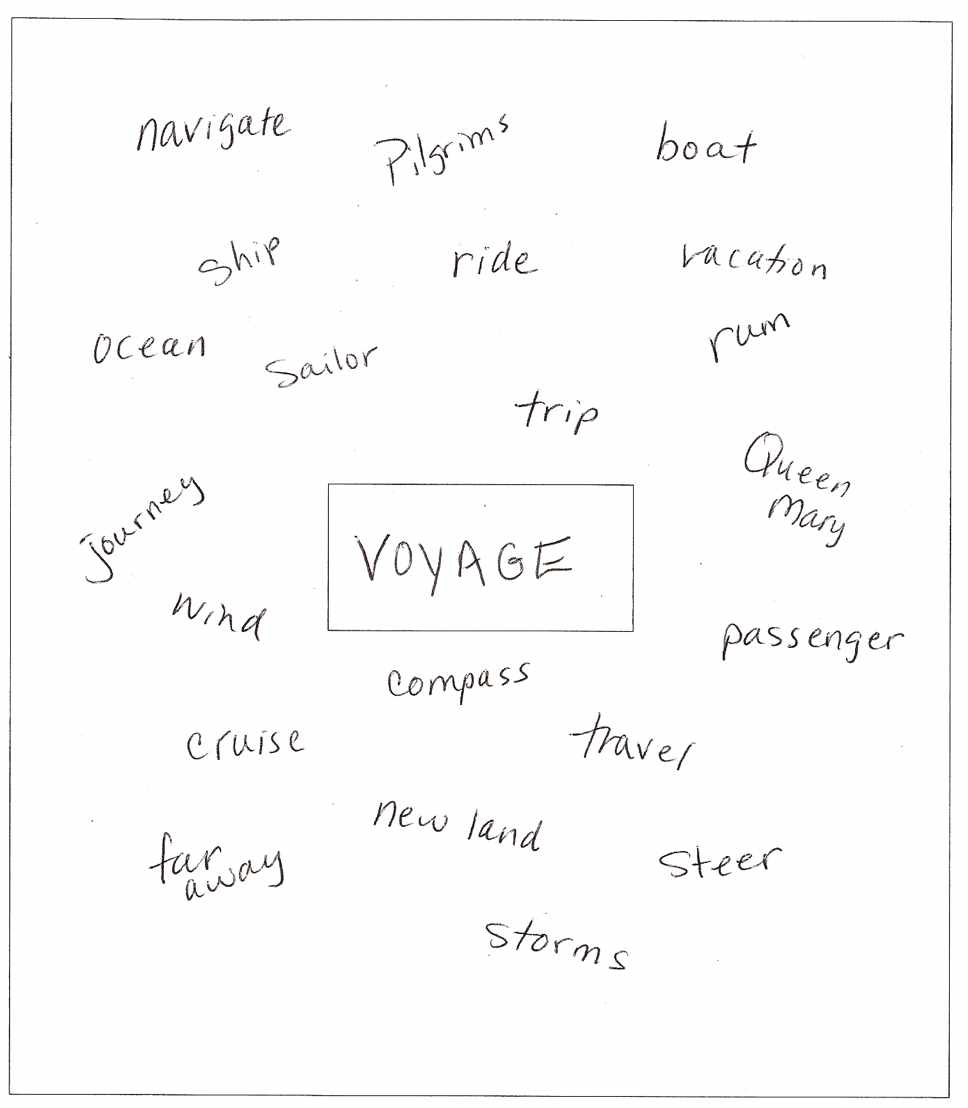 navigate
Pilgrims
boat
ship
ride
vacation
ocean
sailor
rum
trip
Queen
Mary
journey
VOYAGE
wind
passenger
compass
cruise
travel
new land
far
away
steer
storms